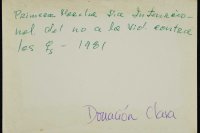 Primera Marcha Dia Internacio-
nal del no a la Viol. contra
las
- 1981
Donación Clara